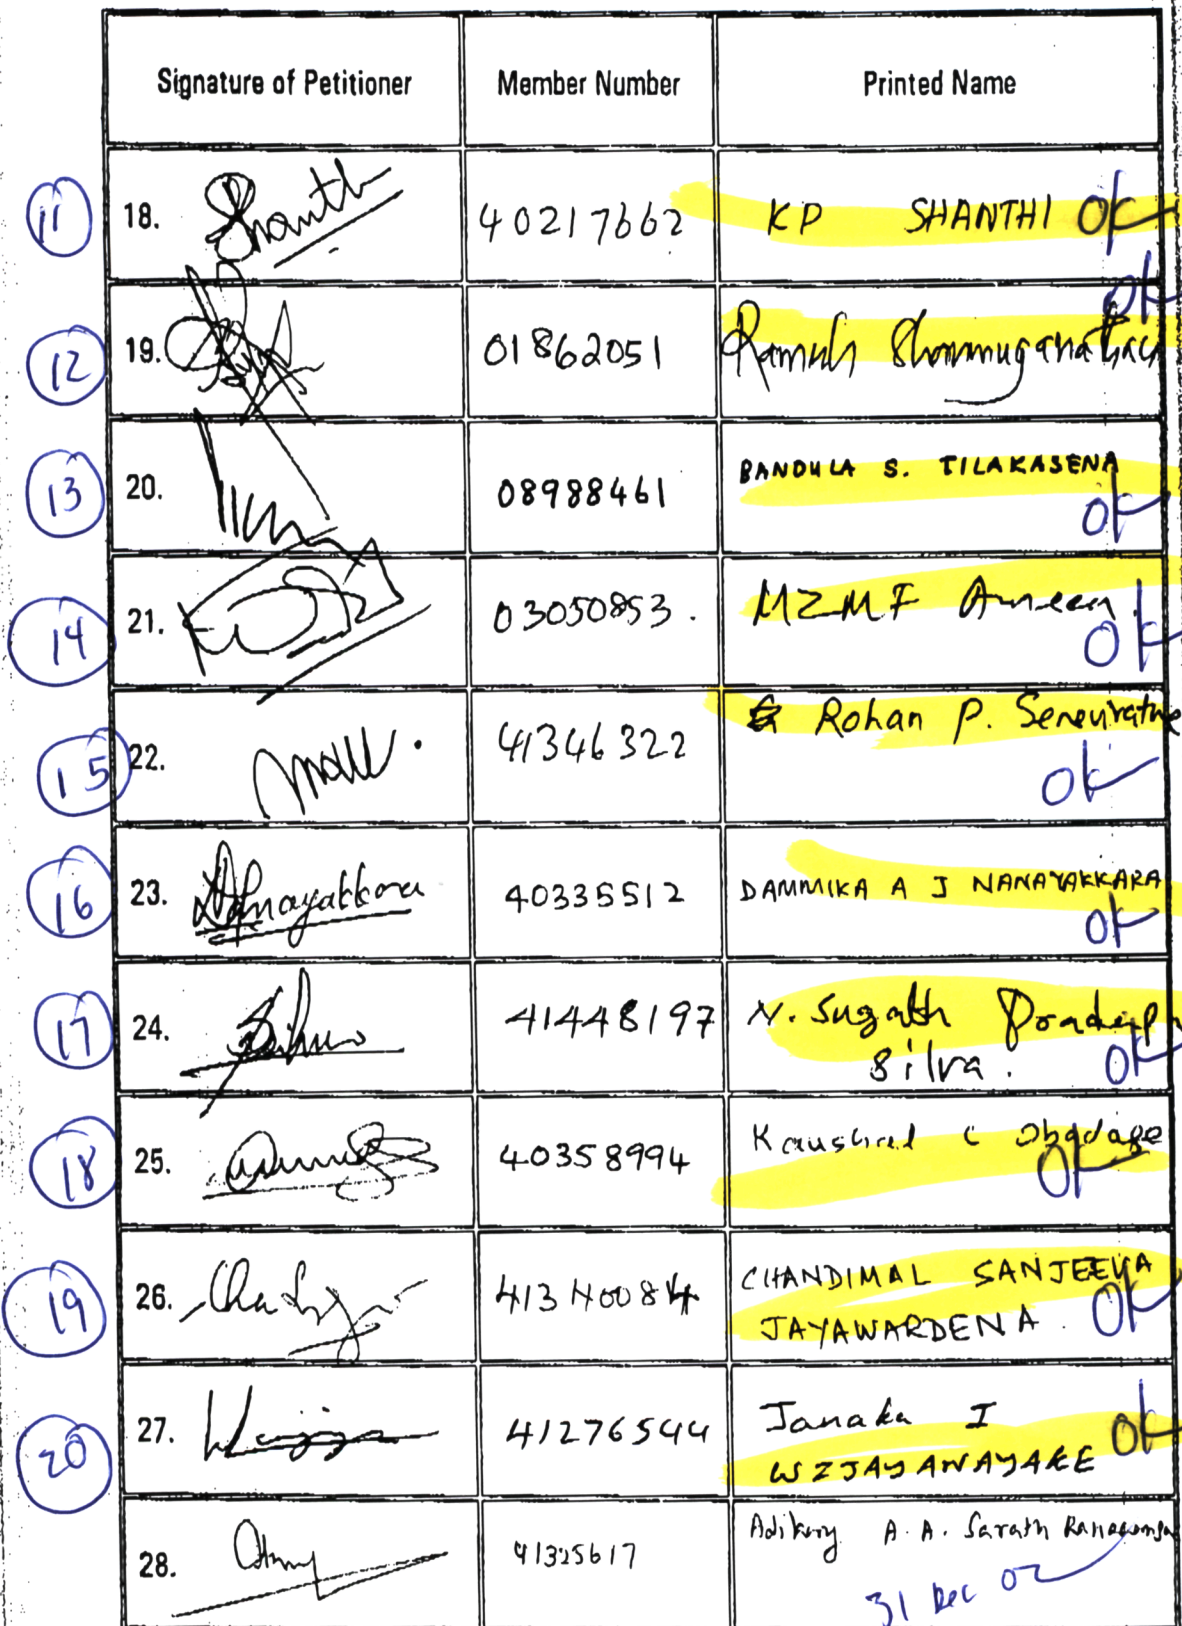 Signature of Petitioner Member Number Printed Name
11 18. Shanth 40217662 KP SHANTHI OK
12 19. 01862051 Ramesh Shanmuganathan OK
13 20. 08988461 BANDULA S. TILAKASENA OK
14 21. 03050853. MZMF Ameen. OK
15 22. 41346322 Rohan P. Seneviratne OK
16 23. Nanayakkara 40335512 DAMMIKA A J NANAYAKKARA OK
17 24. 41448197 N. Sugath Pradeep
Silva. OK
18 25. 40358994 Kaushal C Obadage OK
19 26. 41340084 CHANDIMAL SANJEEVA
JAYAWARDENA. OK
20 27. 41276544 Janaka I
WIJAYANAYAKE OK
28. 41325617 Adikary A. A. Sarath
31 Dec 02